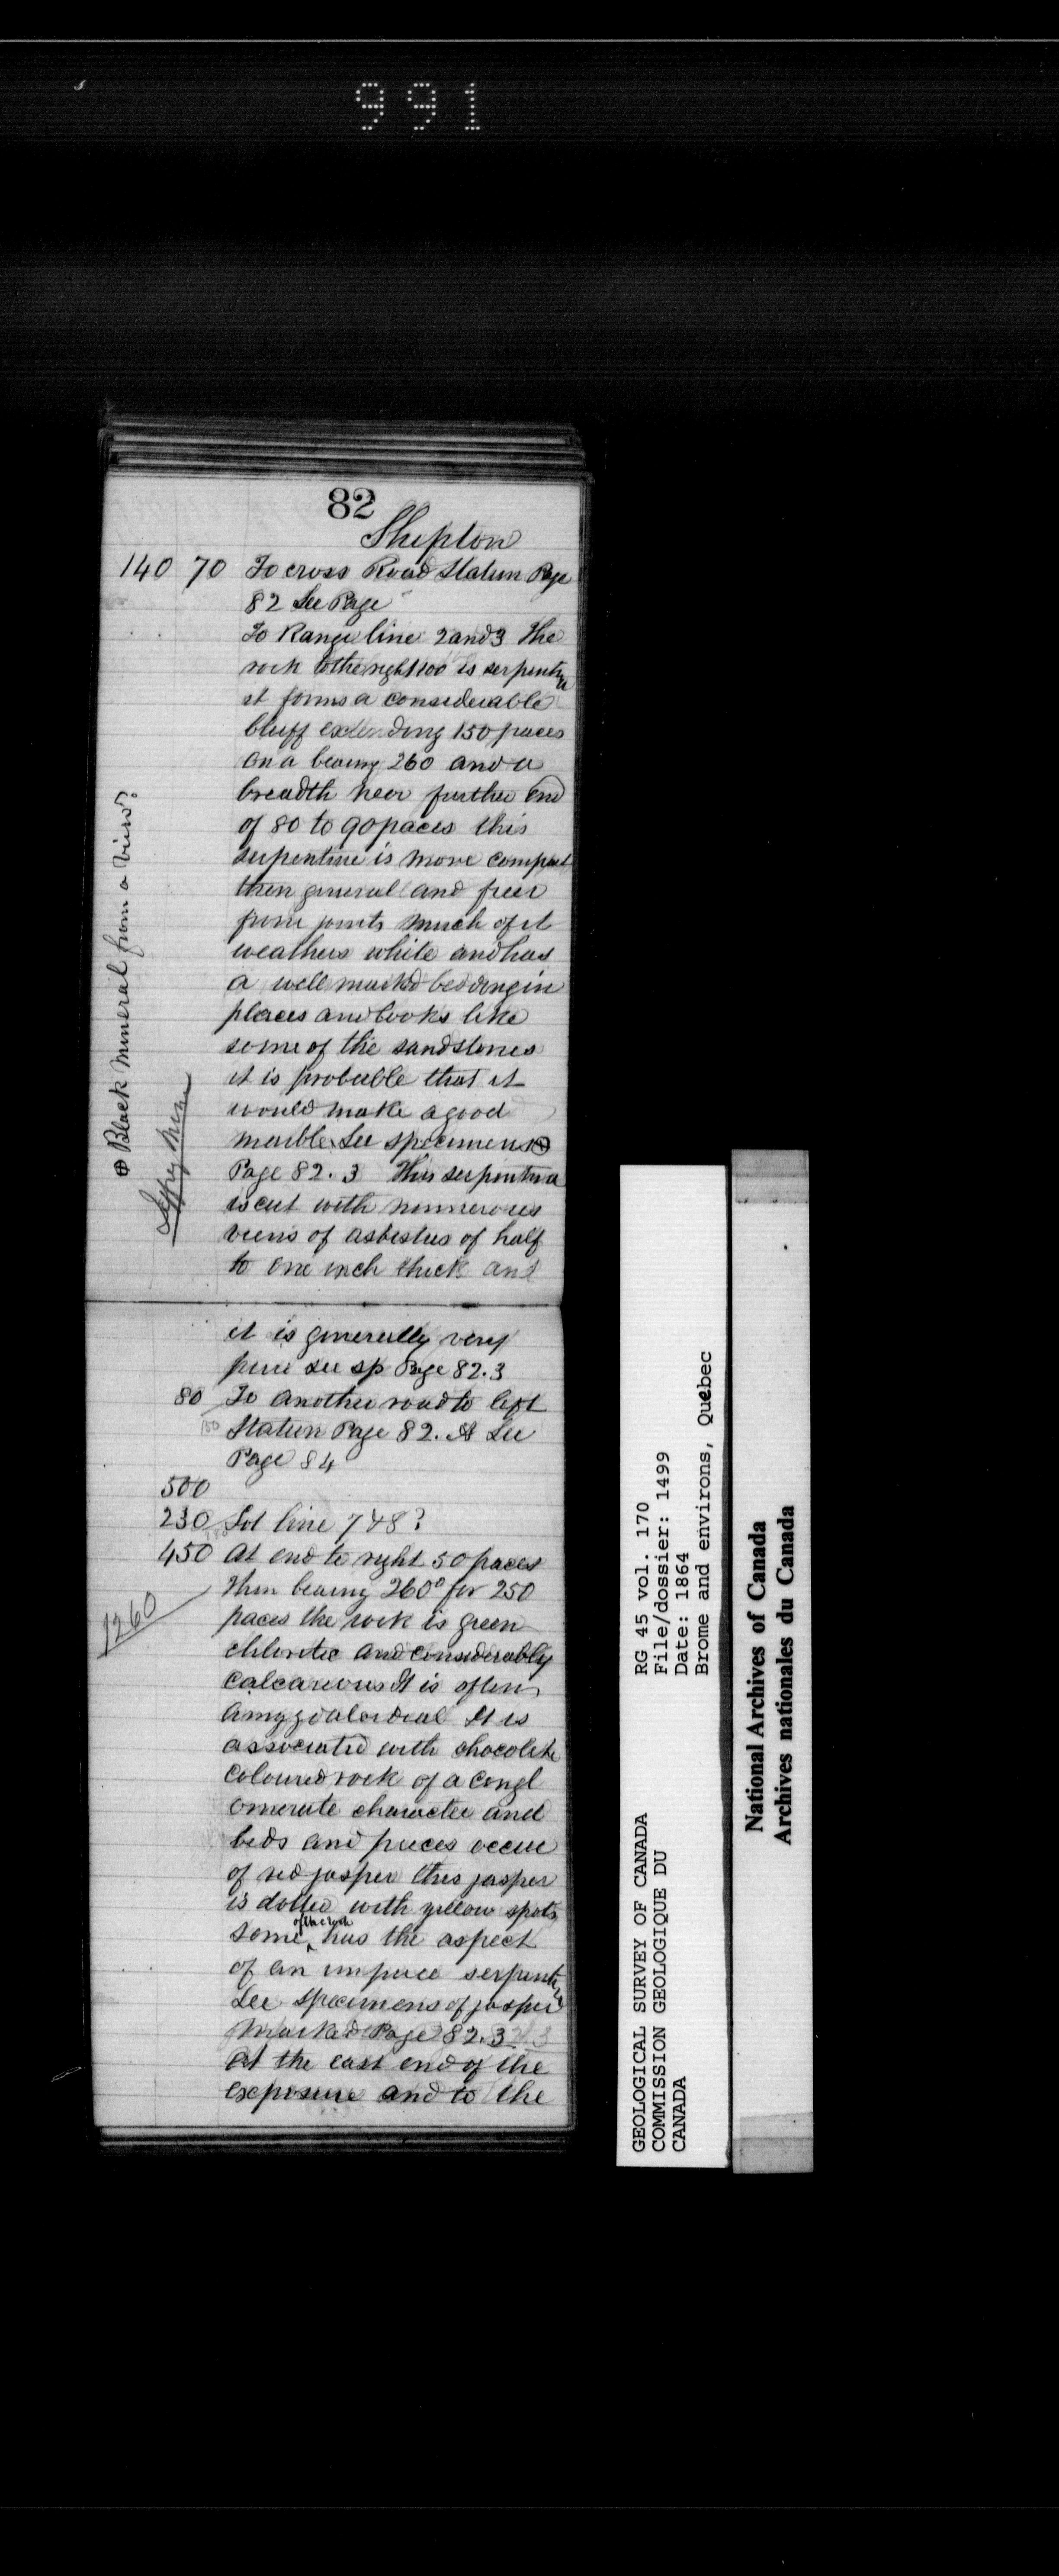 991
82
Shipton
140 70 To cross Road Station Page
82 See Page
To Range line 2 and 3 The
rock to the right 100 is serpentine
it forms a considerable
bluff extending 150 paces
on a bearing 260 and a
breadth near further end
of 80 to 90 paces this
serpentine is more compact
then general and freer
from joints much of it
weathers white and has
a well marked bedding in
places and looks like
some of the sandstones
it is probable that it
would make a good
marble See specimens ⊕
Page 82.3 This serpentine
is cut with numerous
veins of asbestus of half
to one inch thick and
⊕ Black Mineral from a vein?
Mine
it is generally very
pure see sp Page 82.3
80 To another road to left
150 Station Page 82. A See
Page 84
500
230 Lot line 7 & 8?
450 At end to right 50 paces
then bearing 260° for 250
1260 paces the rock is green
chloritic and considerably
calcareous It is often
amygdaloidal It is
associated with chocolate
coloured rock of a congl
omerate character and
beds and pieces occur
of red jasper this jasper
is dotted with yellow spots
some of the rock has the aspect
of an impure serpentine
See specimens of jasper
Marked Page 82.3
At the east end of the
exposure and to the
GEOLOGICAL SURVEY OF CANADA
COMMISSION GEOLOGIQUE DU
CANADA
RG 45 vol. 170
File/dossier: 1499
Date: 1864
Brome and environs, Québec
National Archives of Canada
Archives nationales du Canada